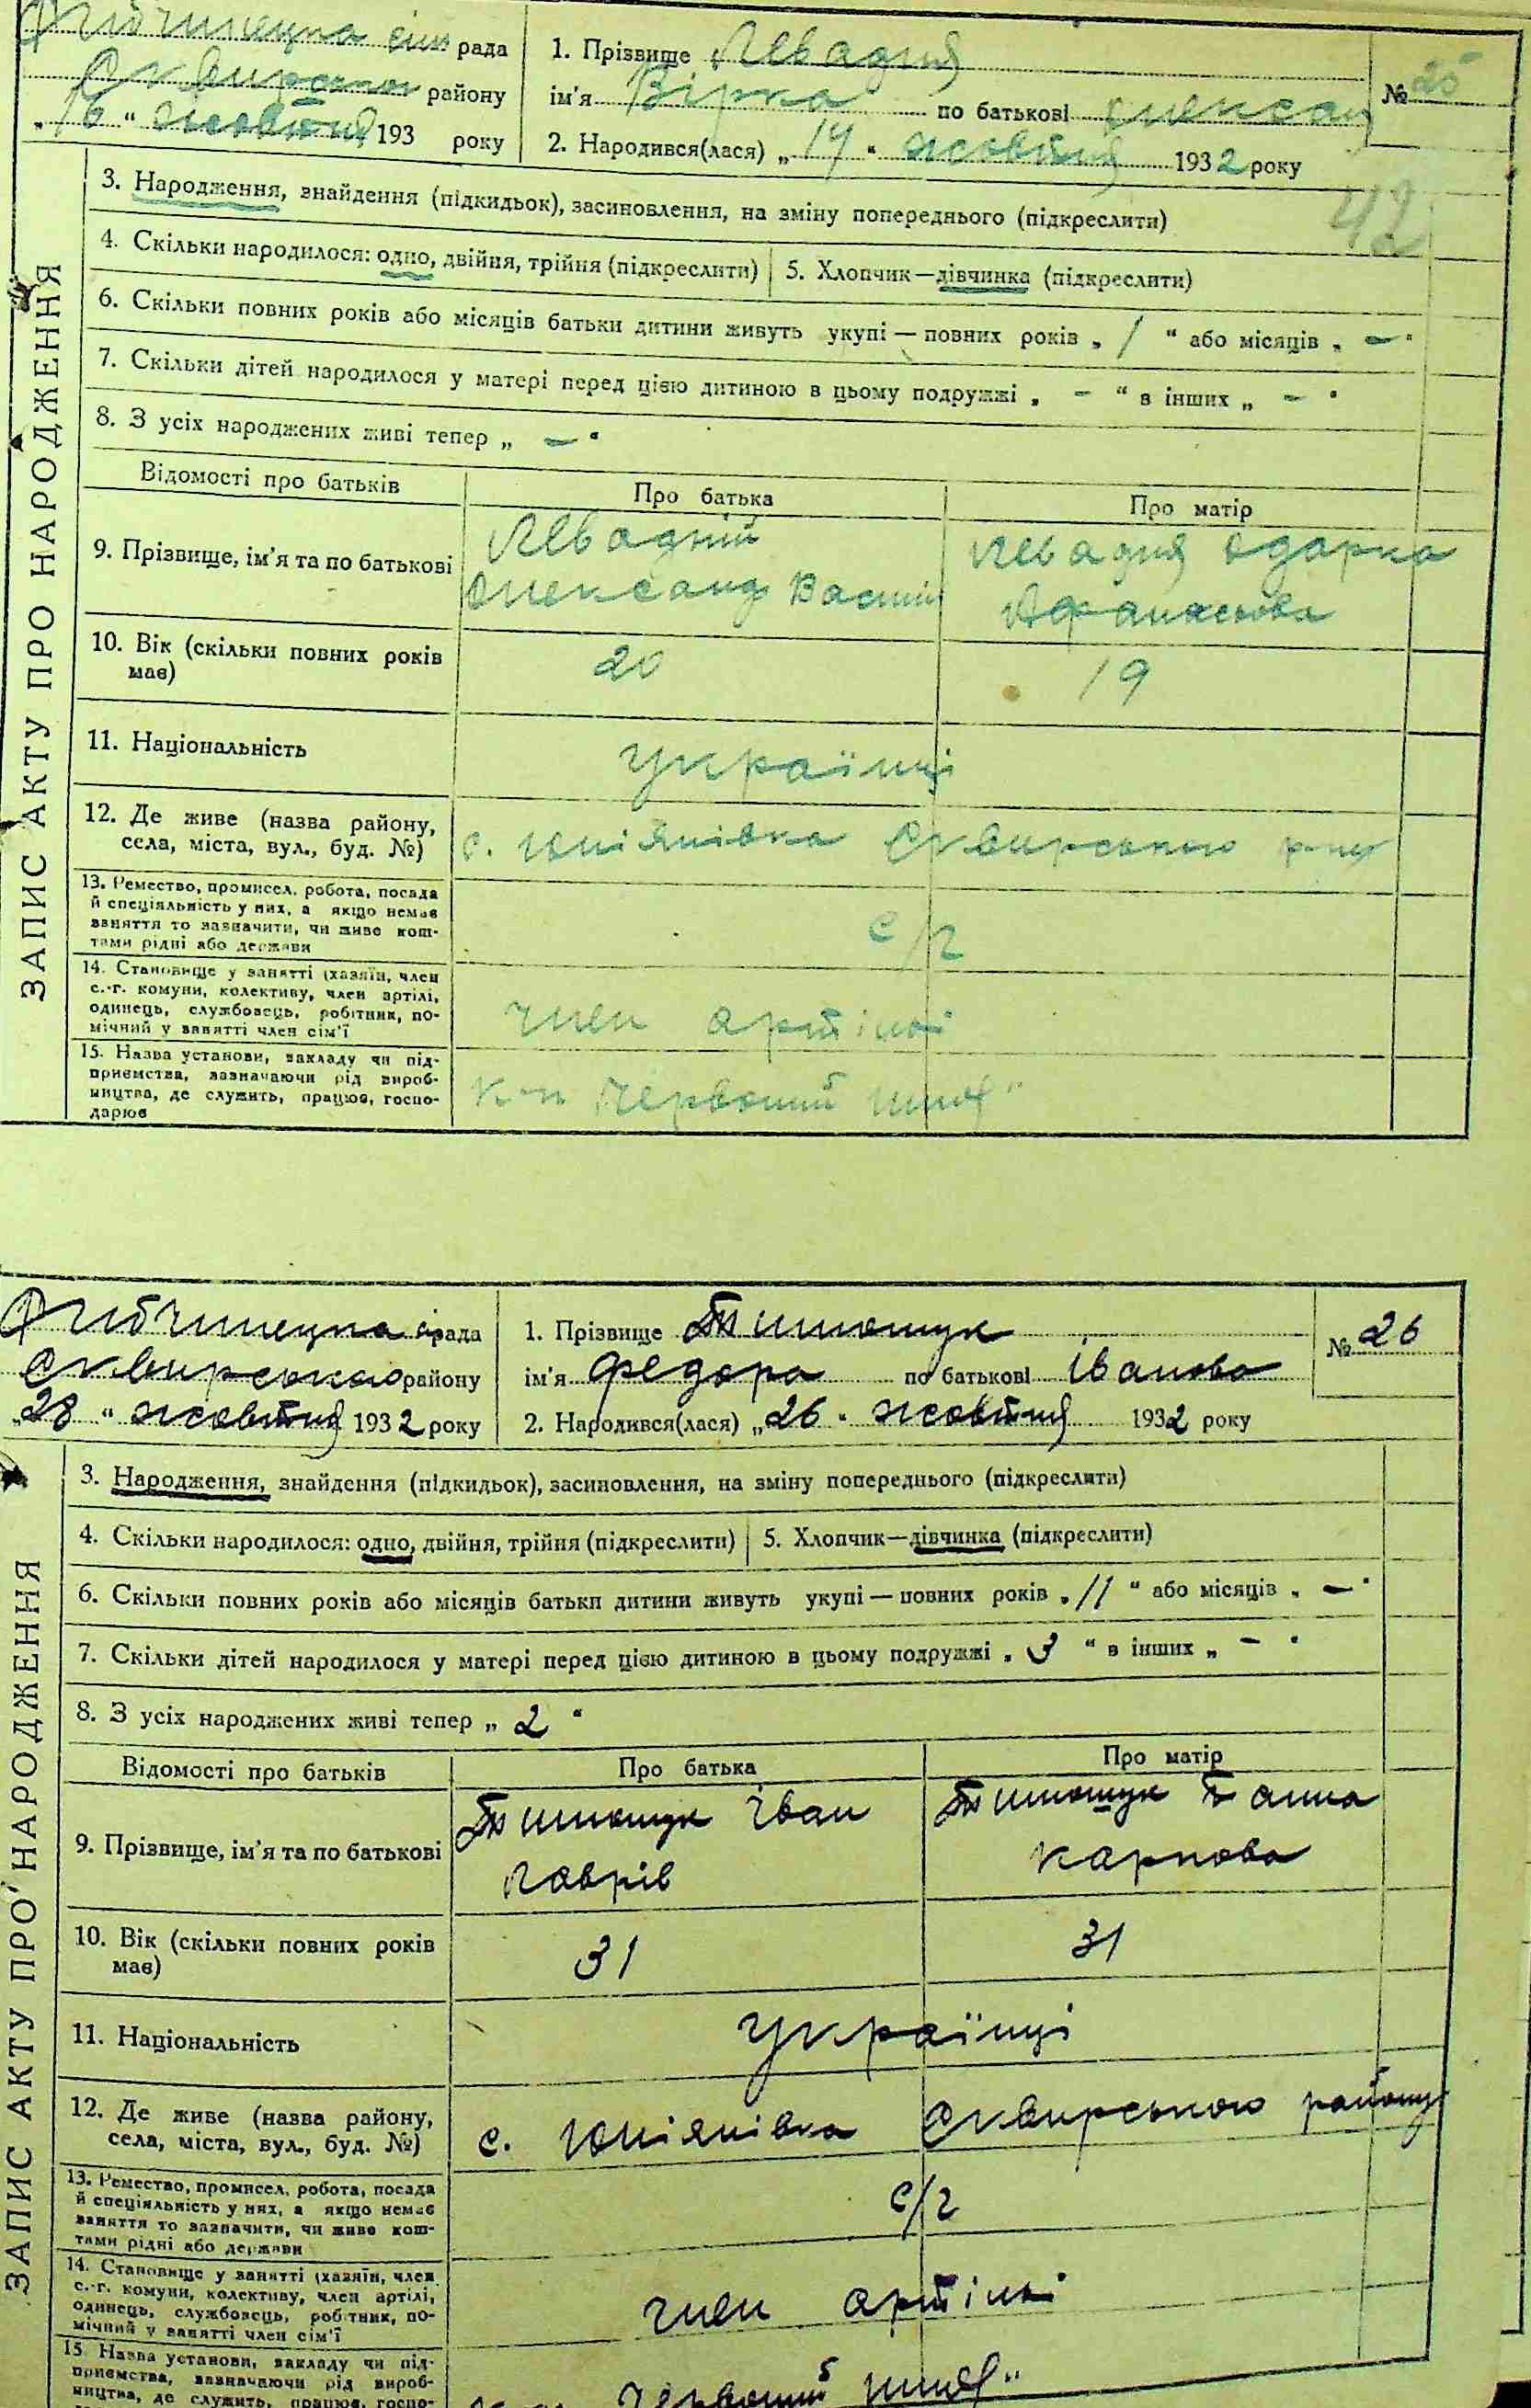 рада
району
„16“ жовтня 193 року
1. Прізвище Левадня
ім'я Вірка по батькові Олександ
№ 25
2. Народився(лася) „ “ жовтня 1932 року
42
ЗАПИС АКТУ ПРО НАРОДЖЕННЯ
3. Народження, знайдення (підкидьок), засиновлення, на зміну попереднього (підкреслити)
4. Скільки народилося: одно, двійня, трійня (підкреслити) 5. Хлопчик—дівчинка (підкреслити)
6. Скільки повних років або місяців батьки дитини живуть укупі — повних років „ 1 “ або місяців „ — “
7. Скільки дітей народилося у матері перед цією дитиною в цьому подружжі „ — “ в інших „ — “
8. З усіх народжених живі тепер „ — “
Відомості про батьків Про батька Про матір
9. Прізвище, ім'я та по батькові
Левадній
Олександр Васил
Левадня Одарка
Афанасьова
10. Вік (скільки повних років має) 20 19
11. Національність українці
12. Де живе (назва району,
села, міста, вул., буд. №) с. Юліянівка Сквирського р-ну
13. Ремество, промисел, робота, посада
й спеціяльність у них, а якщо немає
заняття то зазначити, чи живе кош-
тами рідні або держави
с/г
14. Становище у занятті (хазяїн, член
с.-г. комуни, колективу, член артілі,
одинець, службовець, робітник, по-
мічний у занятті член сім'ї
член артілі
15. Назва установи, закладу чи під-
приємства, зазначаючи рід вироб-
ництва, де служить, працює, госпо-
дарює
Червоний шлях“
рада
Сквирського району
„28“ жовтня 1932 року
1. Прізвище Тимощук
ім'я Федора по батькові Іванова
№ 26
2. Народився(лася) „26“ жовтня 1932 року
ЗАПИС АКТУ ПРО НАРОДЖЕННЯ
3. Народження, знайдення (підкидьок), засиновлення, на зміну попереднього (підкреслити)
4. Скільки народилося: одно, двійня, трійня (підкреслити) 5. Хлопчик—дівчинка (підкреслити)
6. Скільки повних років або місяців батьки дитини живуть укупі — повних років „ 11 “ або місяців „ — “
7. Скільки дітей народилося у матері перед цією дитиною в цьому подружжі „ 3 “ в інших „ — “
8. З усіх народжених живі тепер „ 2 “
Відомості про батьків Про батька Про матір
9. Прізвище, ім'я та по батькові
Тимощук Іван
Лаврів
Тимощук Ганна
Карпова
10. Вік (скільки повних років
має)
31 31
11. Національність українці
12. Де живе (назва району,
села, міста, вул., буд. №) с. Юліянівка Сквирського району
13. Ремество, промисел, робота, посада
й спеціяльність у них, а якщо немає
заняття то зазначити, чи живе кош-
тами рідні або держави
с/г
14. Становище у занятті (хазяїн, член
с.-г. комуни, колективу, член артілі,
одинець, службовець, робітник, по-
мічний у занятті член сім'ї
член артілі
15. Назва установи, закладу чи під-
приємства, зазначаючи рід вироб-
ництва, де служить, працює, госпо-
Червоний шлях“